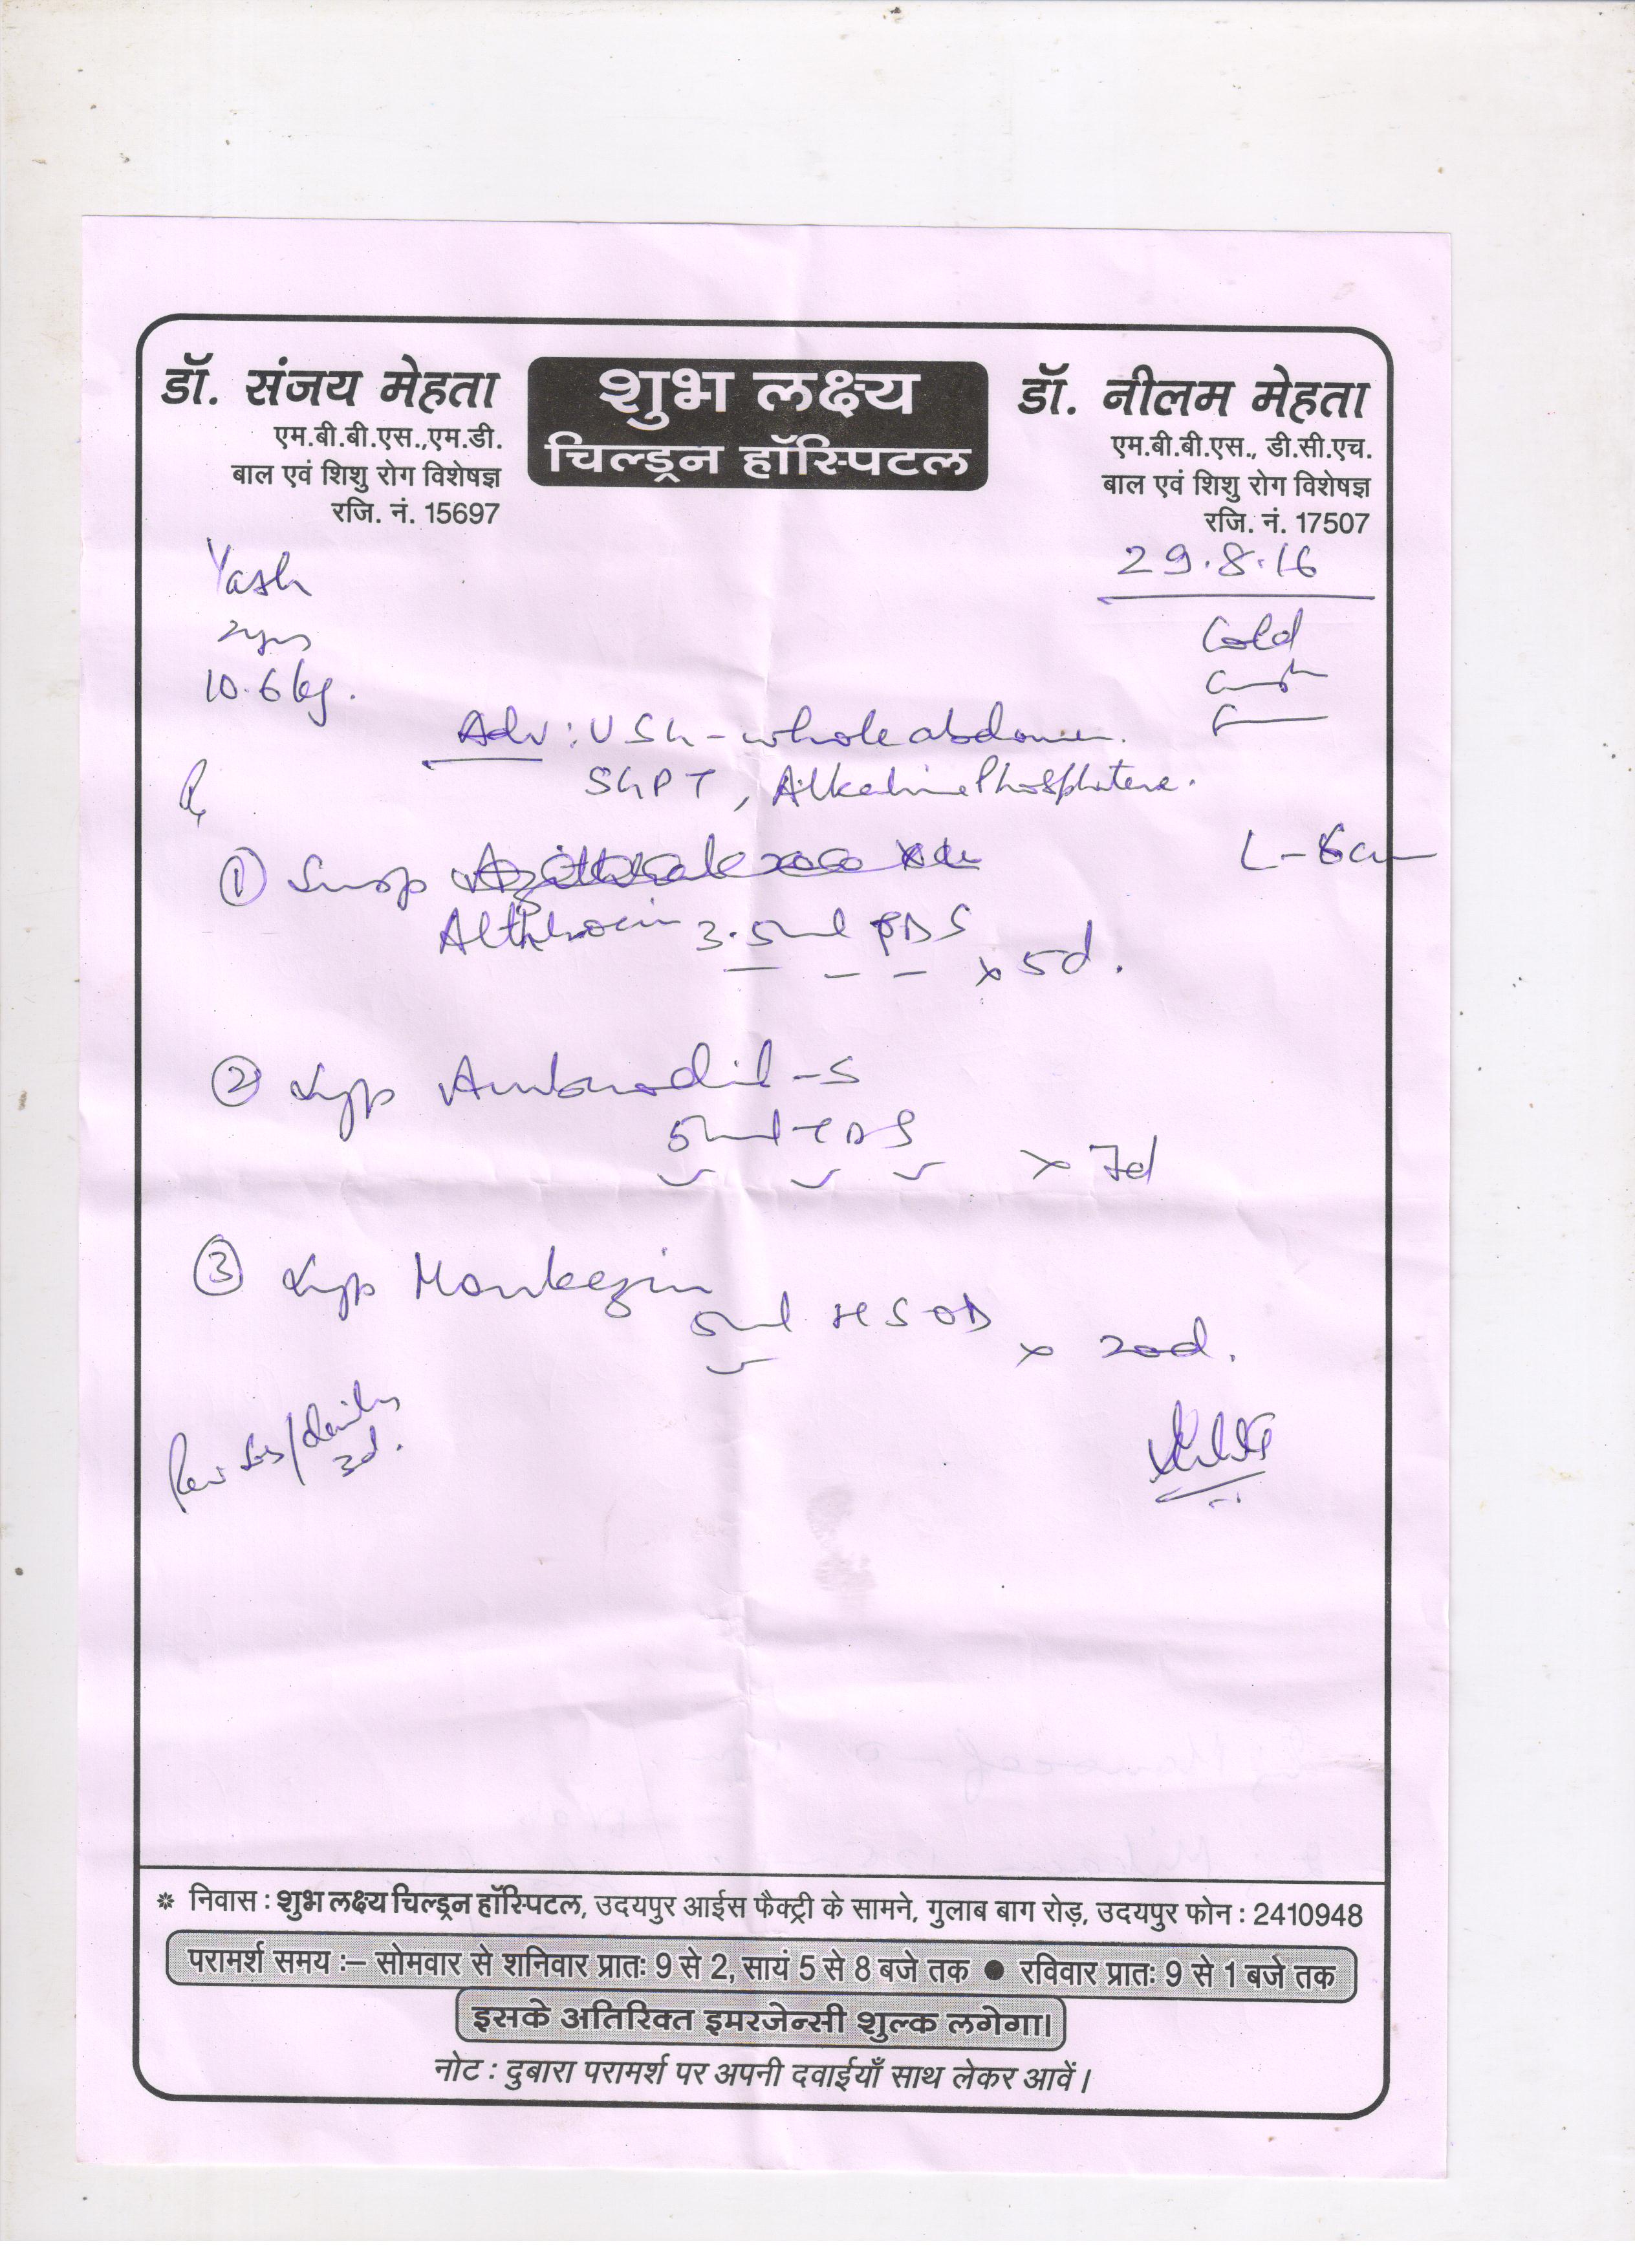 डॉ. संजय मेहता
एम.बी.बी.एस.,एम.डी.
बाल एवं शिशु रोग विशेषज्ञ
रजि. नं. 15697
शुभ लक्ष्य
चिल्ड्रन हॉस्पिटल
डॉ. नीलम मेहता
एम.बी.बी.एस., डी.सी.एच.
बाल एवं शिशु रोग विशेषज्ञ
रजि. नं. 17507
29.8.16
Yash
2yrs
10.6 kg.
Cold
Cough
Adv: USG - whole abdomen.
SGPT, Alkaline Phosphatase.
L - 6cm
① Susp
Althrocin 3.5ml QDS x 5d.
② Syp Ambrodil-S
5ml TDS x 7d
③ Syp
5ml HS OD x 20d.
3d.
❋ निवास : शुभ लक्ष्य चिल्ड्रन हॉस्पिटल, उदयपुर आईस फैक्ट्री के सामने, गुलाब बाग रोड़, उदयपुर फोन : 2410948
परामर्श समय :– सोमवार से शनिवार प्रातः 9 से 2, सायं 5 से 8 बजे तक ● रविवार प्रातः 9 से 1 बजे तक
इसके अतिरिक्त इमरजेन्सी शुल्क लगेगा।
नोट : दुबारा परामर्श पर अपनी दवाईयाँ साथ लेकर आवें।